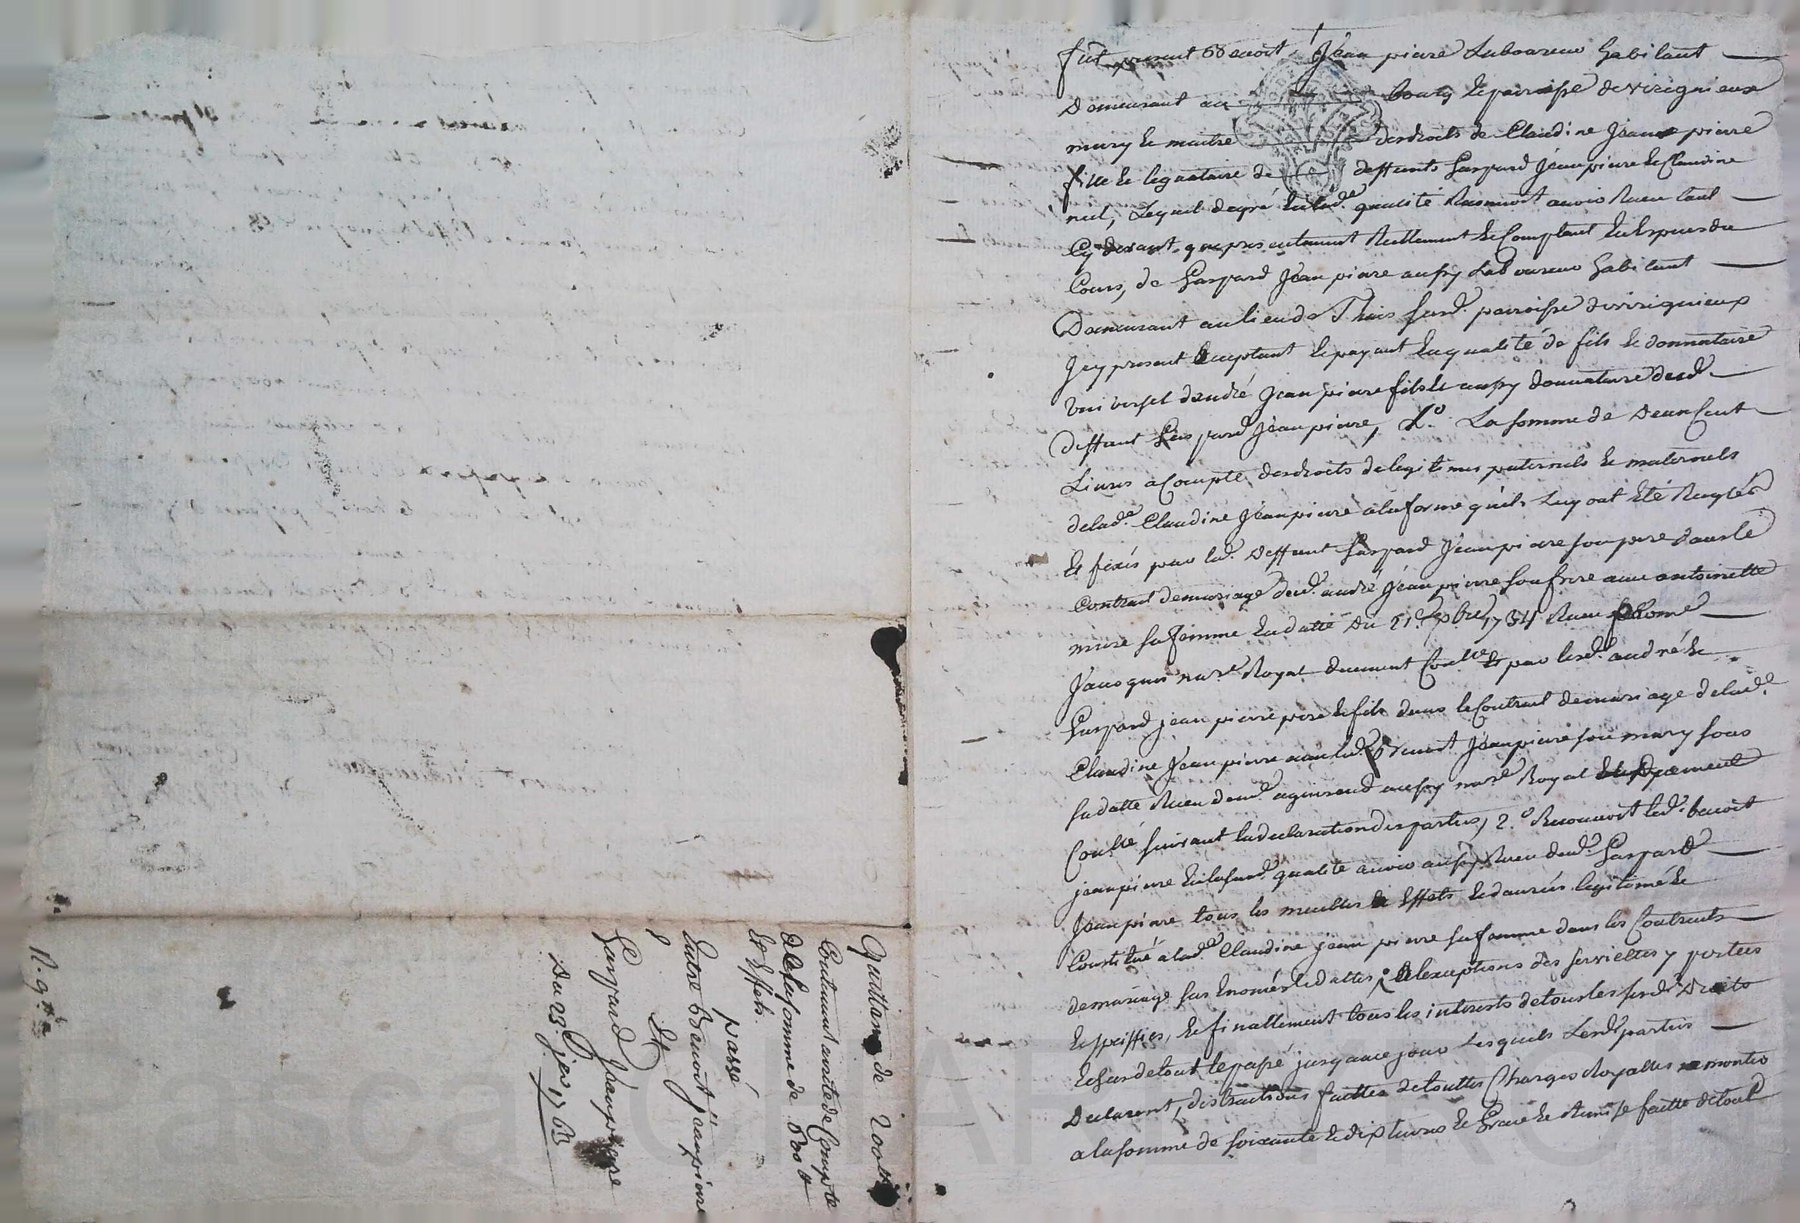 fut present Benoit Jean pierre Laboureur habitant
Demeurant au bourg & paroisse de virignieux
mary & maitre des droits de Claudine Jean pierre
fille & legataire de deffunts Gaspard Jeanpierre & Claudine
Lequel degré & lad.e qualité Reconnoit avoir Receu tant
Cy devant que presentement Reellement & Comptant En Espesses du
Cours, de Gaspard Jean pierre aussy Laboureur habitant
Demeurant au lieu de Thus susd. paroisse de virignieux
Jcy present acceptant & payant En qualité de fils & donnataire
universel dandré Jean pierre fils & aussy donnataire dud.
deffunt Gaspard Jeanpierre, 1.o La somme de Deux Cent
Livres a Compte des droits de legitimes paternels & maternels
de lad.e Claudine Jeanpierre a la forme quils Luy ont Eté Reglés
& fixés par led. Deffunt Gaspard Jeanpierre son pere dans le
Contrat de mariage dud. andré Jeanpierre son frere avec antoinette
mure sa femme En datte du 21.e 1734 Receu
Jacoques no.re Royal duement Con.lé & par lesd. andré &
Gaspard jean pierre pere & fils dans le Contrat de mariage de lad.e
Claudine Jeanpierre avec led. Benoit Jeanpierre son mary sous
sa datte Receu dud. aguiraud aussy no.re Royal & duement
Con.lé suivant la declaration des parties, 2.o Reconnoit led. benoit
jeanpierre En lasusd. qualité avoir aussy Receu dud. Gaspard
Jeanpierre tous les meubles & Effets & danrées legitimé &
Constitué a lad.e Claudine jean pierre sa femme dans les Contrats
de mariage sus Enoncés & dattés, a lexceptions des serviettes y portées
& speciffiées, & finallement tous les interests de tous les susd. Droits
& sur de tout le passé jusqua ce jour Lesquels Lesd. parties
Declarent, distractions faittes de touttes Charges Royalles montés
a la somme de soixante & dix Livres & Grace & Remise faitte de tout
Quittance de 200 ₶
Contenant arreté de Compte
de la somme de
& Effets.
passé
Entre Benoit Jeanpierre
Et
Gaspard Jeanpierre
Du 23. jer 1763